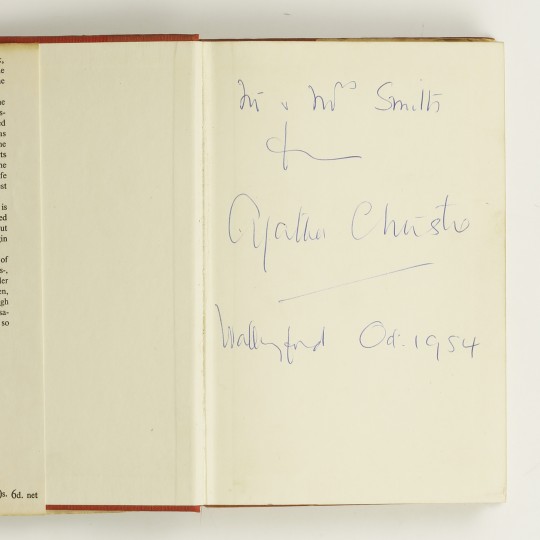 Mr & Mrs Smith
from
Agatha Christie
Wallingford Oct. 1954
is
of
so
6d. net